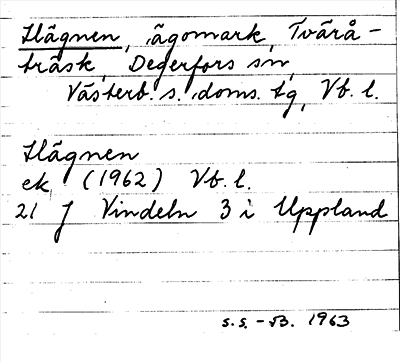 Hägnen, ägomark, Tvärå-
träsk, Degerfors sn,
Västerb. s. doms. tg, Vb. l.
Hägnen
ek. (1962) Vb. l.
21 J Vindeln 3 i Uppland
s.s. - 1963